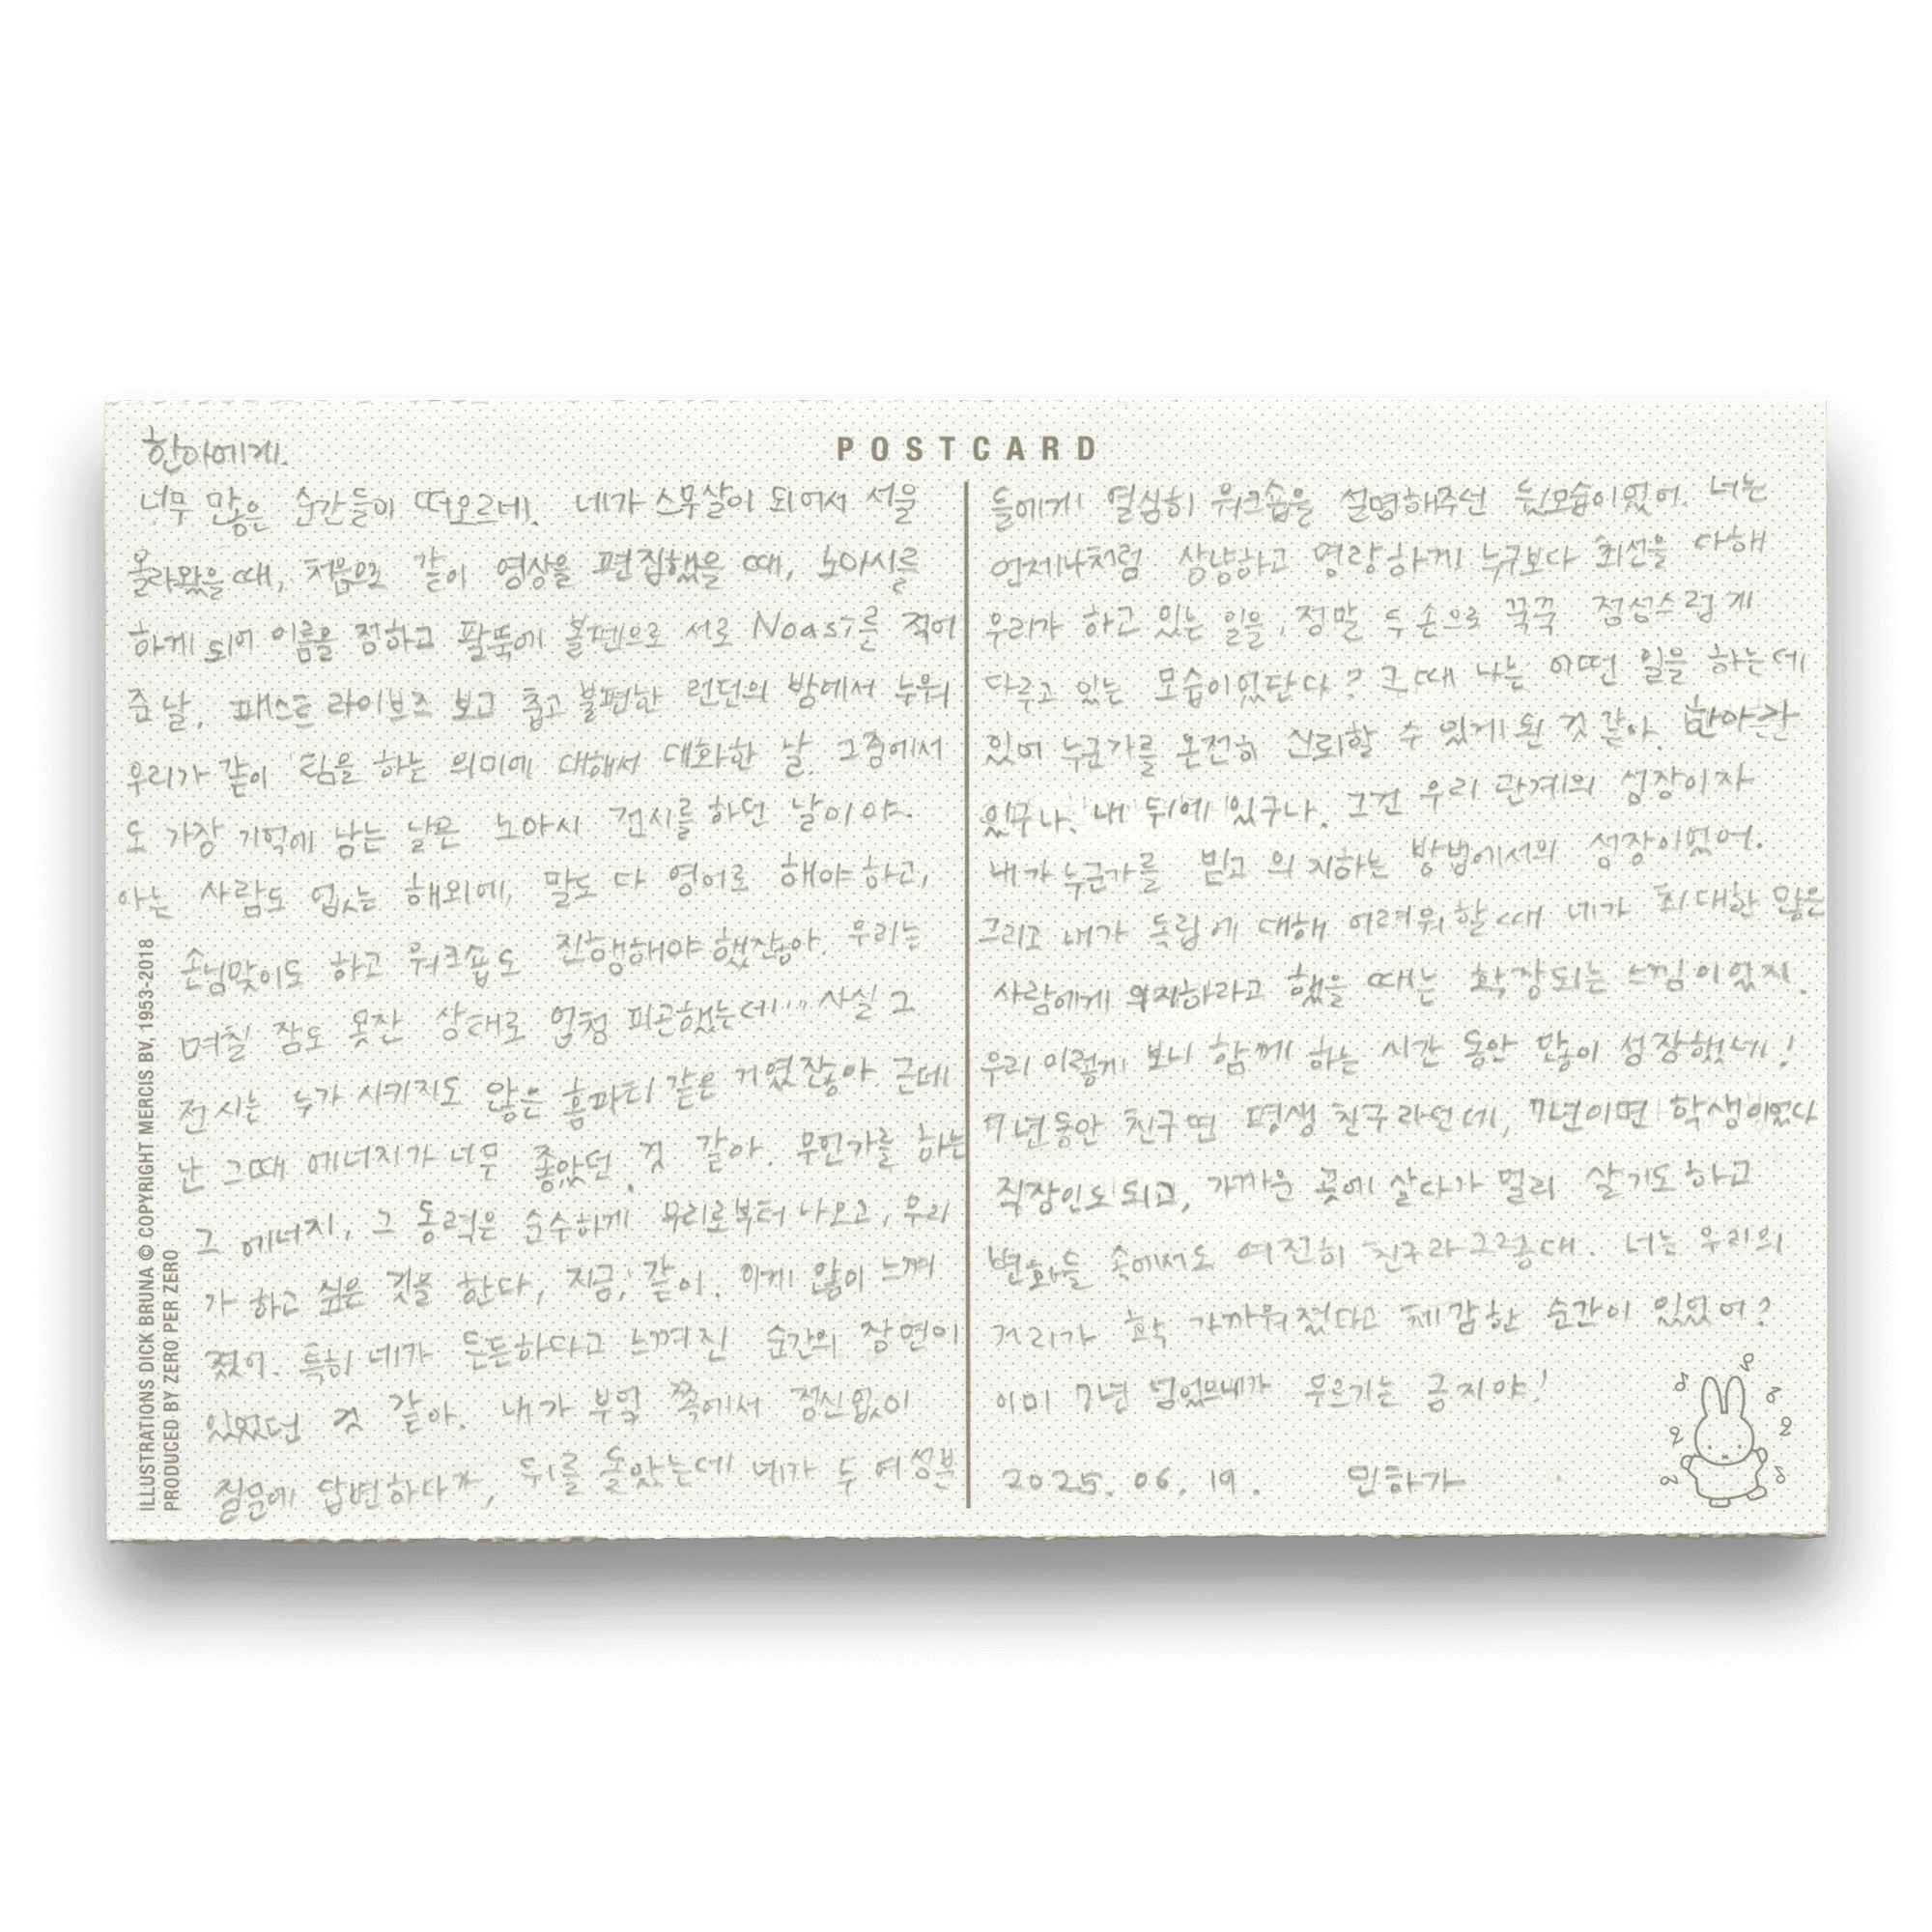 POSTCARD
한아에게.
너무 많은 순간들이 떠오르네. 네가 스무살이 되어서 서울
올라왔을 때, 처음으로 같이 영상을 편집했을 때, 노아시를
하게 되어 이름을 정하고 팔뚝에 볼펜으로 서로 Noasi를 적어
준 날, 패스트 라이브즈 보고 춥고 불편한 런던의 방에서 누워
우리가 같이 팀을 하는 의미에 대해서 대화한 날. 그중에서
도 가장 기억에 남는 날은 노아시 전시를 하던 날이야.
아는 사람도 없는 해외에, 말도 다 영어로 해야하고,
손님맞이도 하고 워크숍도 진행해야했잖아. 우리는
며칠 잠도 못잔 상태로 엄청 피곤했는데... 사실 그
전시는 누가 시키지도 않은 홈파티 같은 거였잖아. 근데
난 그때 에너지가 너무 좋았던 것 같아. 무언가를 하는
그 에너지, 그 동력은 순수하게 우리로부터 나오고, 우리
가 하고 싶은 것을 한다, 지금, 같이. 이게 많이 느껴
졌어. 특히 네가 든든하다고 느껴진 순간의 장면이
있었던 것 같아. 내가 부엌 쪽에서 정신없이
질문에 답변하다가, 뒤를 돌았는데 네가 두 여성분
들에게 열심히 워크숍을 설명해주던 뒷모습이었어. 너는
언제나처럼 상냥하고 명랑하게 누구보다 최선을 다해
우리가 하고 있는 일을, 정말 두 손으로 꾹꾹 정성스럽게
다루고 있는 모습이었단다? 그때 나는 어떤 일을 하는데
있어 누군가를 온전히 신뢰할 수 있게 된 것 같아. 한아가
있구나. 내 뒤에 있구나. 그건 우리 관계의 성장이자
내가 누군가를 믿고 의지하는 방법에서의 성장이었어.
그리고 내가 독립에 대해 어려워할 때 네가 최대한 많은
사람에게 의지하라고 했을 때는 확장되는 느낌이었지.
우리 이렇게 보니 함께 하는 시간 동안 많이 성장했네!
7년동안 친구면 평생 친구라던데, 7년이면 학생이었다
직장인도 되고, 가까운 곳에 살다가 멀리 살기도 하고
변화들 속에서도 여전히 친구라 그런대. 너는 우리의
거리가 확 가까워졌다고 체감한 순간이 있었어?
이미 7년 넘었으니까 무르기는 금지야!
2025. 06. 19. 민하가
ILLUSTRATIONS DICK BRUNA © COPYRIGHT MERCIS BV, 1953-2018
PRODUCED BY ZERO PER ZERO